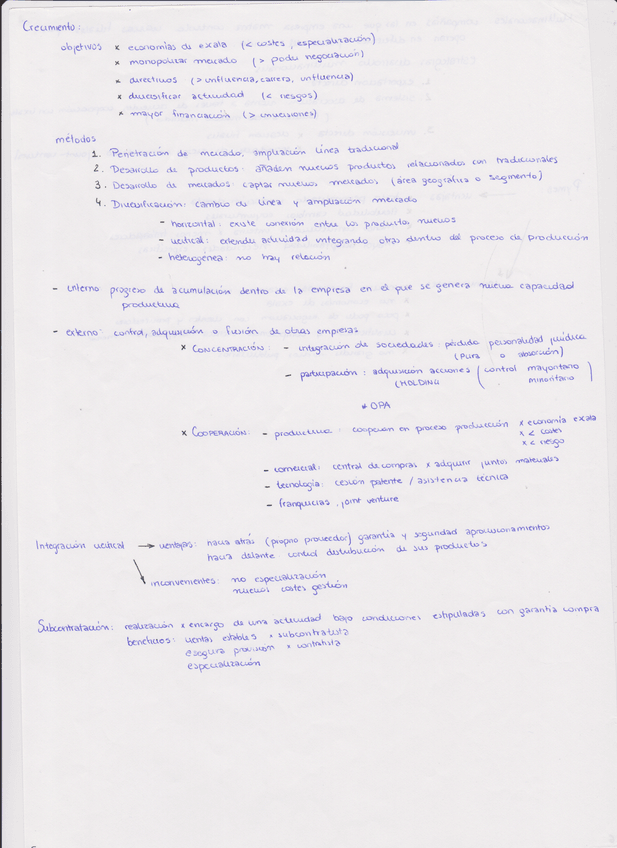 Crecimiento:
objetivos x economías de escala (< costes, especialización)
x monopolizar mercado (> poder negociación)
x directivos (> influencia, carrera, influencia)
x diversificar actividad (< riesgos)
x mayor financiación (> inversiones)
métodos
1. Penetración de mercado, ampliación línea tradicional
2. Desarrollo de productos: añaden nuevos productos relacionados con tradicionales
3. Desarrollo de mercados: captar nuevos mercados (área geográfica o segmento)
4. Diversificación: cambio de línea y ampliación mercado
- horizontal: existe conexión entre los productos nuevos
- vertical: extender actividad integrando otras dentro del proceso de producción
- heterogénea: no hay relación
- interno: progreso de acumulación dentro de la empresa en el que se genera nueva capacidad
productiva
- externo: control, adquisición o fusión de otras empresas
x CONCENTRACIÓN: - integración de sociedades: pérdida personalidad jurídica
(Pura o absorción)
- participación: adquisición acciones ( control mayoritario
(HOLDING minoritario )
* OPA
x COOPERACIÓN: - productiva: cooperan en proceso producción x economía escala
x < costes
x < riesgo
- comercial: central de compras x adquirir juntos materiales
- tecnología: cesión patente / asistencia técnica
- franquicias, joint venture
Integración vertical → ventajas: hacia atrás (propio proveedor) garantía y seguridad aprovisionamientos
hacia delante control distribución de sus productos
inconvenientes: no especialización
nuevos costes gestión
Subcontratación: realización x encargo de una actividad bajo condiciones estipuladas con garantía compra
beneficios: ventas estables x subcontratista
asegura provisión x contratista
especialización